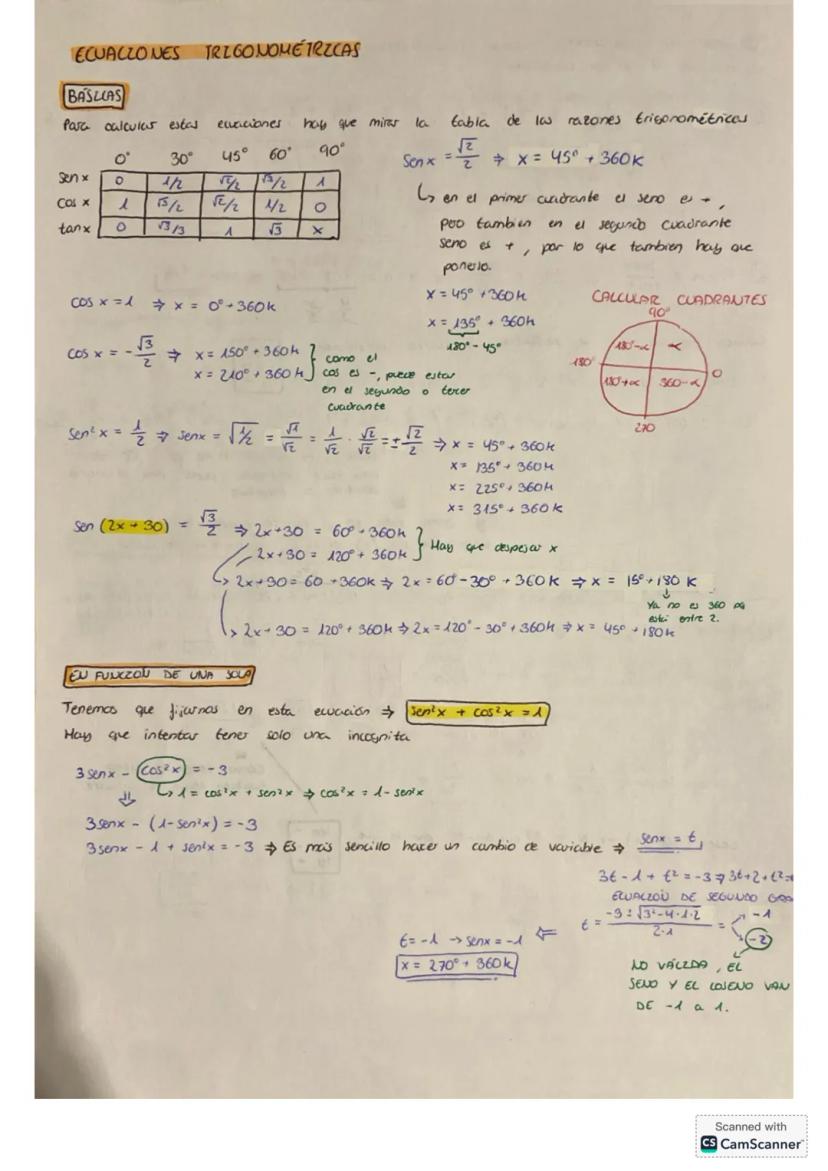 ECUACIONES TRIGONOMÉTRICAS
BÁSICAS
Para calcular estas ecuaciones hay que mirar la tabla de las razones trigonométricas
0° 30° 45° 60° 90°
sen x 0 1/2 √2/2 √3/2 1
cos x 1 √3/2 √2/2 1/2 0
tan x 0 √3/3 1 √3 x
Sen x = √2/2 ⇒ x = 45° + 360K
↳ en el primer cuadrante el seno es +,
pero tambien en el segundo cuadrante
seno es +, por lo que tambien hay que
ponerlo.
x = 45° + 360K
x = 135° + 360K
180° - 45°
CALCULAR CUADRANTES
90°
180-α α
180 0
180+α 360-α
270
cos x = 1 ⇒ x = 0° + 360K
cos x = -√3/2 ⇒ x = 150° + 360K
x = 210° + 360K
como el
cos es -, puede estar
en el segundo o tercer
cuadrante
sen² x = 1/2 ⇒ senx = √1/2 = √1/√2 = 1/√2 · √2/√2 = ±√2/2 ⇒ x = 45° + 360K
x = 135° + 360K
x = 225° + 360K
x = 315° + 360K
sen (2x + 30) = √3/2 ⇒ 2x + 30 = 60° + 360K
2x + 30 = 120° + 360K
Hay que despejar x
↳ 2x + 30 = 60 + 360K ⇒ 2x = 60 - 30° + 360K ⇒ x = 15° + 180 K
↓
Ya no es 360 pq
está entre 2.
↳ 2x + 30 = 120° + 360K ⇒ 2x = 120° - 30° + 360K ⇒ x = 45° + 180K
EN FUNCION DE UNA SOLA
Tenemos que fijarnos en esta ecuación ⇒ sen²x + cos²x = 1
Hay que intentar tener solo una incognita
3 senx - cos²x = -3
⇓ ↳ 1 = cos²x + sen²x ⇒ cos²x = 1 - sen²x
3senx - (1-sen²x) = -3
3senx - 1 + sen²x = -3 ⇒ Es más sencillo hacer un cambio de variable ⇒ senx = t
3t - 1 + t² = -3 ⇒ 3t + 2 + t² =
ECUACION DE SEGUNDO
t = -3 ± √3² - 4 · 1 · 2 / 2 · 1 = -1
-2
t = -1 → senx = -1 ⇐
x = 270° + 360K
NO VÁLIDA, EL
SENO Y EL COSENO VAN
DE -1 a 1.
Scanned with
CS CamScanner